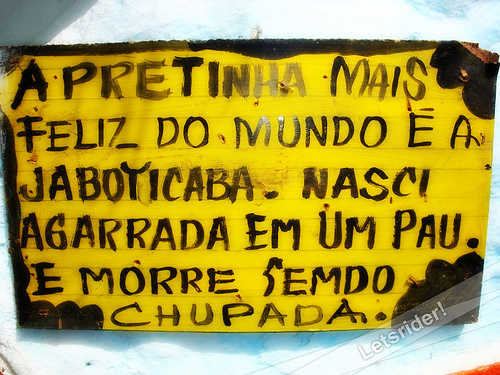 A PRETINHA MAIS
FELIZ DO MUNDO É A
JABOTICABA. NASCI
AGARRADA EM UM PAU.
E MORRE SEMDO
CHUPADA.
Letsrider!